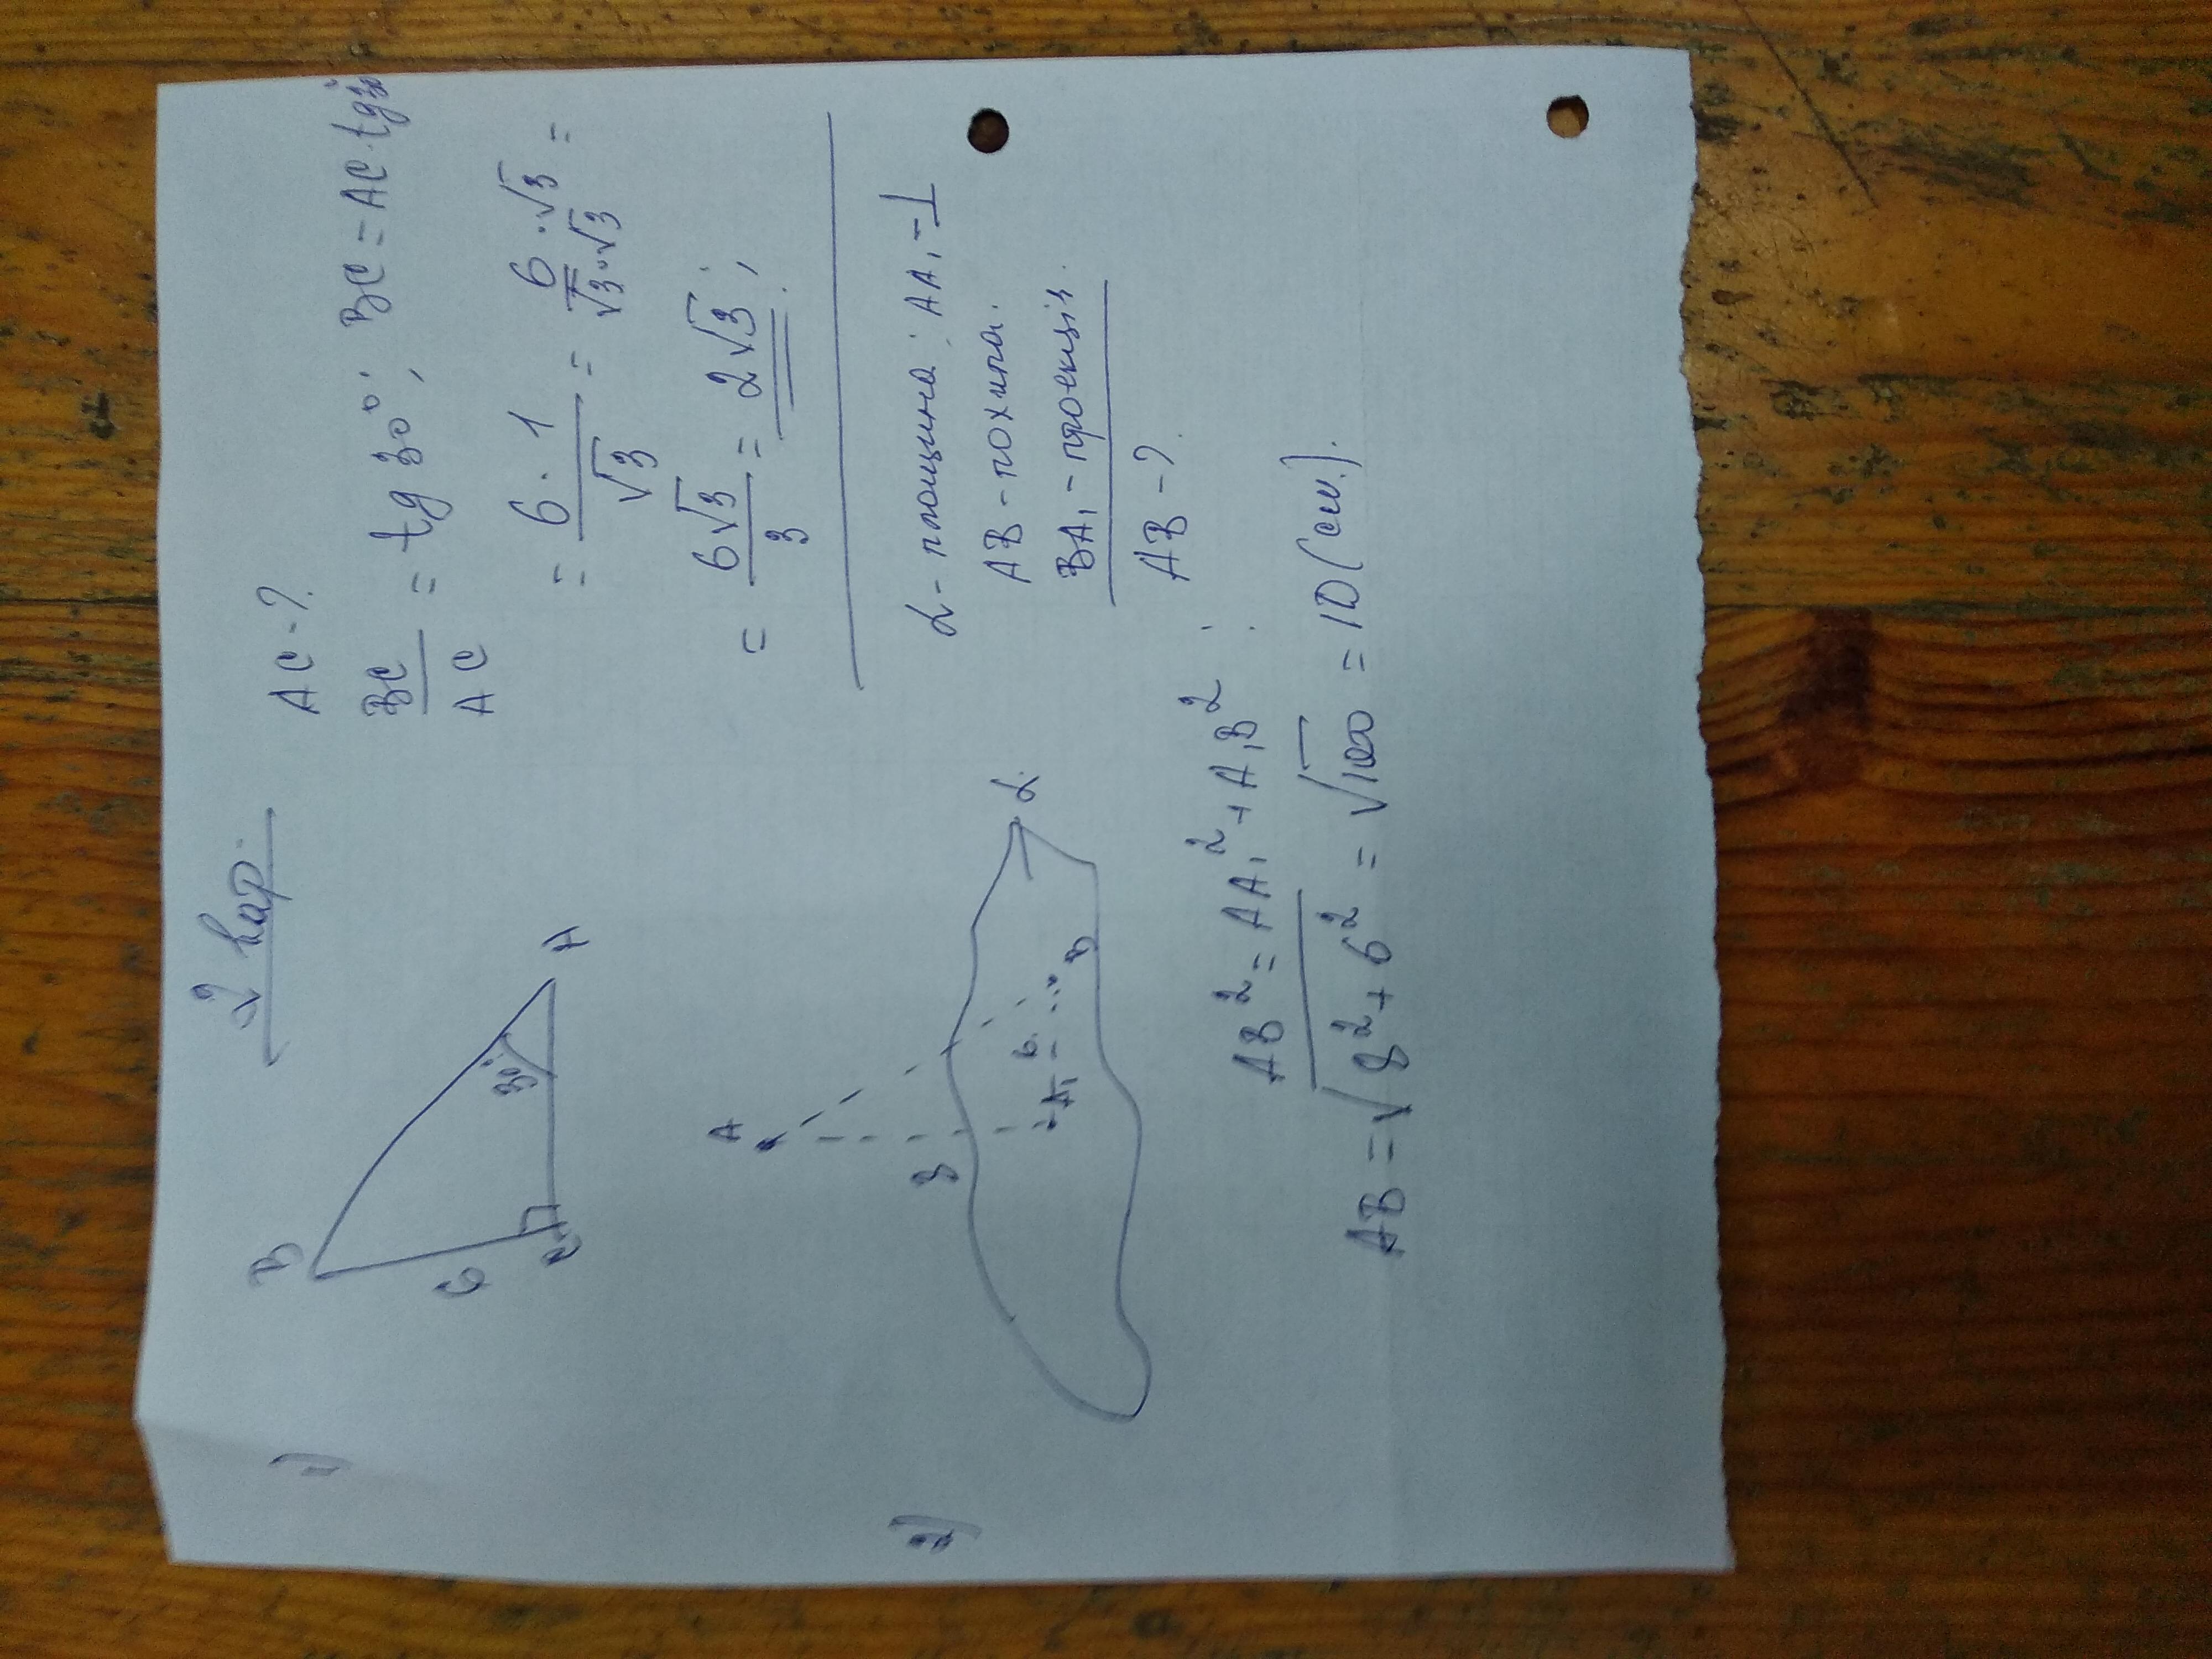 2 вар.
1)
B
6
C
30°
A
AC - ?
BC/AC = tg 30°; BC = AC · tg30°
= 6 · 1/√3 = 6 · √3/√3 · √3 =
= 6√3/3 = 2√3;
2)
A
8
A₁
6
B
α
α - площина; AA₁ - ⊥
AB - похила.
BA₁ - проекція.
AB - ?
AB² = AA₁² + A₁B²;
AB = √8² + 6² = √100 = 10 (см).